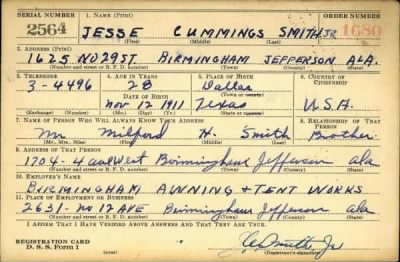 SERIAL NUMBER 1. NAME (Print) ORDER NUMBER
2564 JESSE CUMMINGS SMITH JR 1680
(First) (Middle) (Last)
2. ADDRESS (Print)
1625 NO 29 ST BIRMINGHAM JEFFERSON ALA.
(Number and street or R. F. D. number) (Town) (County) (State)
3. TELEPHONE 4. AGE IN YEARS 5. PLACE OF BIRTH 6. COUNTRY OF CITIZENSHIP
3-4496 28 Dallas
DATE OF BIRTH (Town or county)
Nov 12 1911 Texas U.S.A.
(Exchange) (Number) (Mo.) (Day) (Yr.) (State or country)
7. NAME OF PERSON WHO WILL ALWAYS KNOW YOUR ADDRESS 8. RELATIONSHIP OF THAT PERSON
Mr Milford H. Smith Brother
(Mr., Mrs., Miss) (First) (Middle) (Last)
9. ADDRESS OF THAT PERSON
1204-4 West Birmingham Jefferson ala
(Number and street or R. F. D. number) (Town) (County) (State)
10. EMPLOYER'S NAME
BIRMINGHAM AWNING + TENT WORKS
11. PLACE OF EMPLOYMENT OR BUSINESS
2631-No 12 AVE Birmingham Jefferson ala
(Number and street or R. F. D. number) (Town) (County) (State)
I AFFIRM THAT I HAVE VERIFIED ABOVE ANSWERS AND THAT THEY ARE TRUE.
REGISTRATION CARD
D. S. S. Form 1
J C Smith Jr
(Registrant's signature)